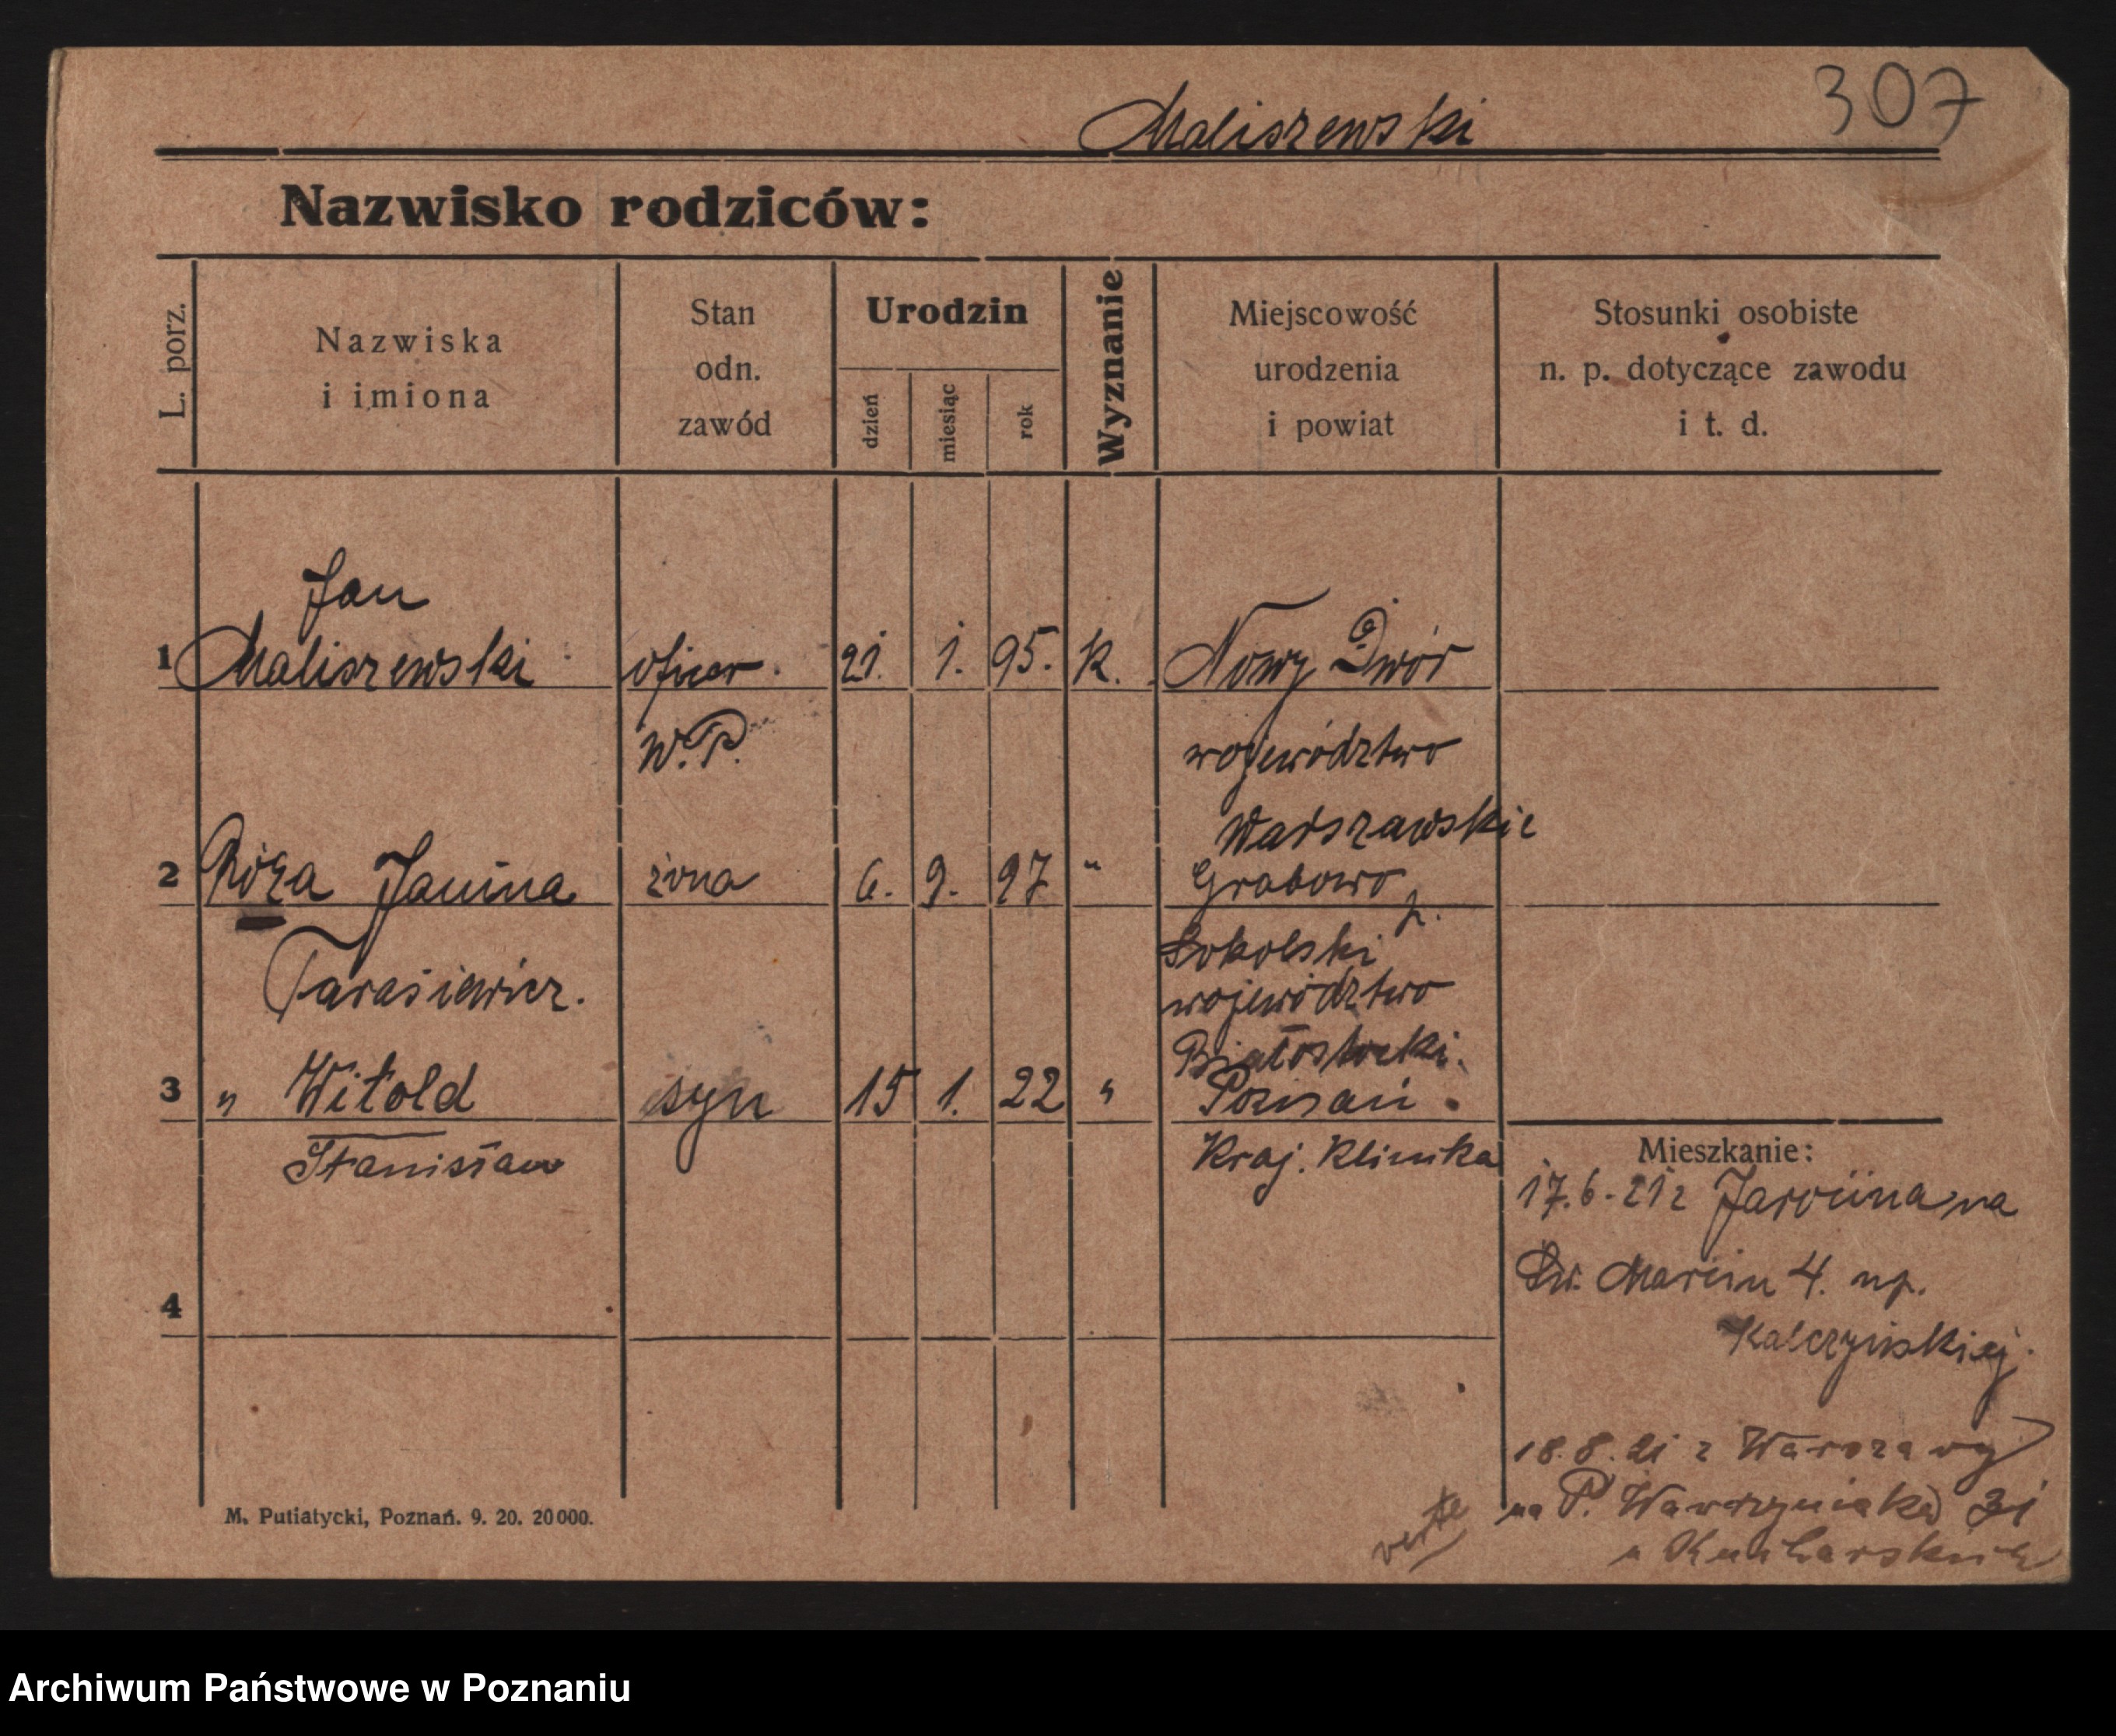 Maliszewski
307
Nazwisko rodziców:
L. porz.
Nazwiska
i imiona
Stan
odn.
zawód
Urodzin
dzień
miesiąc
rok
Wyznanie
Miejscowość
urodzenia
i powiat
Stosunki osobiste
n. p. dotyczące zawodu
i t. d.
Jan
1 Maliszewski oficer 21. 1. 95. K. Nowy Dwór
W.P. województwo
Warszawskie
2 Róża Janina żona 6. 9. 97 " Grabowo p.
Sokolski
Tarasiewicz. województwo
Białostocki.
3 " Witold syn 15 1. 22 " Poznań.
Stanisław Kraj. Klinika
Mieszkanie:
17.6.21 z Jarocina na
Św. Marcin 4. up.
4
18.8.21 z Warszawy
na P. Wawrzyniaka 31
verte
M. Putiatycki, Poznań. 9. 20. 20000.
Archiwum Państwowe w Poznaniu